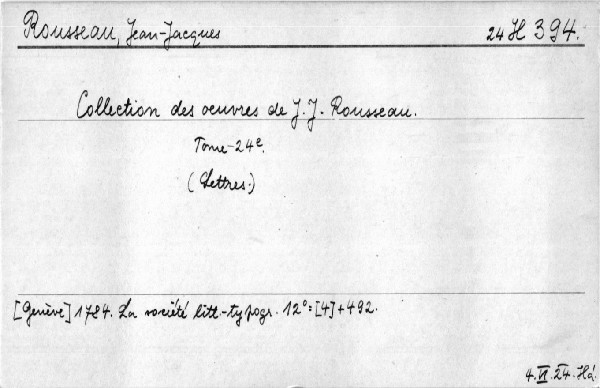 Rousseau, Jean-Jacques 24 H 394.
Collection des oeuvres de J. J. Rousseau.
Tome 24e.
(Lettres.)
[Genève] 1784. La société litt.-typogr. 12°: [4]+492.
4.VI.24. Há.